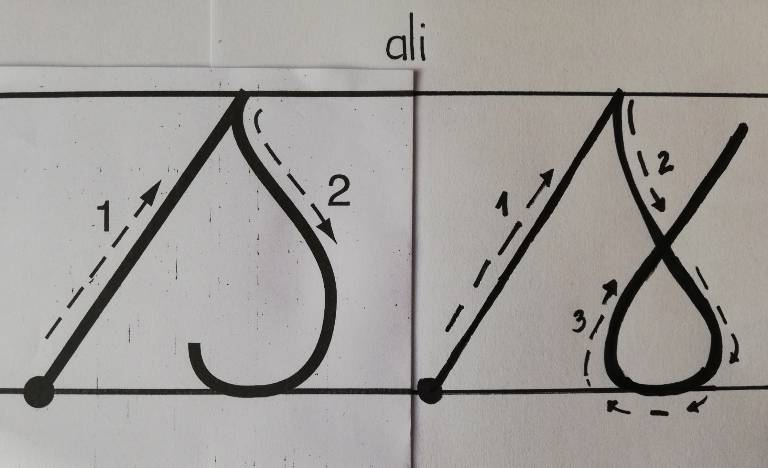 ali
1 2
1 2
3